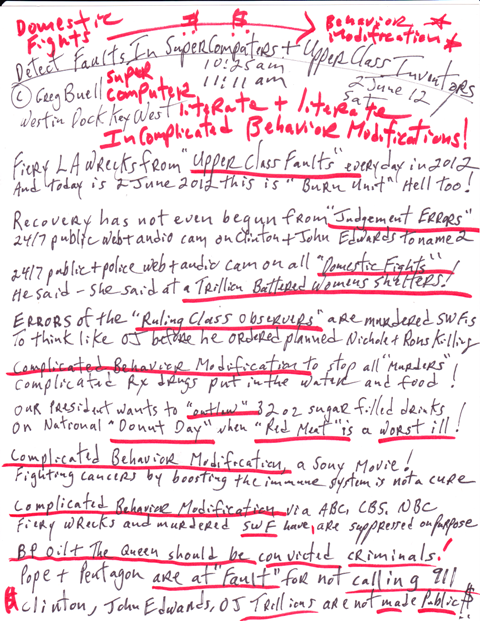 Domestic Fights # # Behavior Modification
Detect Faults In SuperComputers + Upper Class Inventors
10:25 am
11:11 am
© Greg Buell super computer 2 June 12
Westin Dock Key West literate + literate Sat
In Complicated Behavior Modifications!
Fiery LA Wrecks from "Upper Class Faults" everyday in 2012
And today is 2 June 2012 this is "Burn Unit" Hell too!
Recovery has not even begun from "Judgement Errors"
24/7 public web + audio cam on Clinton + John Edwards to name 2
24/7 public + police web + audio cam on all "Domestic Fights"!
He said - She said at a Trillion Battered Womens Shelters!
Errors of the "Ruling Class Observers" are murdered SWF's
To think like OJ before he ordered planned Nichole + Rons Killing
Complicated Behavior Modification to stop all "Murders"
Complicated Rx drugs put in the water and food!
Our President wants to "outlaw" 32 oz sugar filled drinks
On National "Donut Day" when "Red Meat" is a worst ill!
Complicated Behavior Modification, a Sony Movie!
Fighting cancers by boosting the immune system is not a cure
Complicated Behavior Modification via ABC, CBS, NBC
Fiery wrecks and murdered SWF have, are suppressed on purpose
BP Oil + The Queen should be convicted criminals!
Pope + Pentagon are at "Fault" for not calling 911
Clinton, John Edwards, OJ Trillions are not made Public $